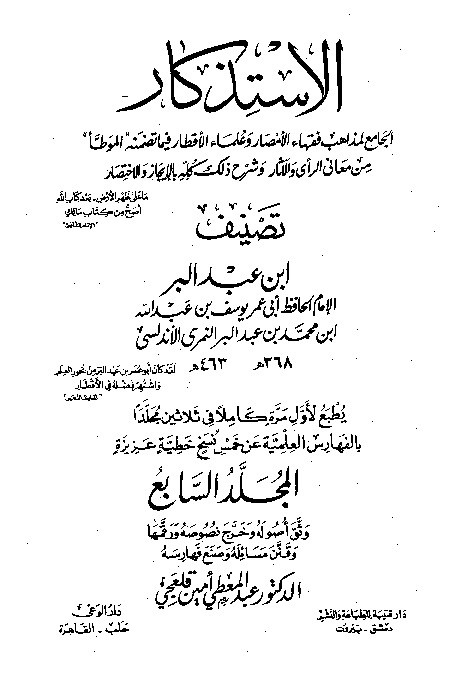 الاستذكار
الجامع لمذاهب فقهاء الأمصار وعلماء الأقطار فيما تضمنه "الموطأ"
من معاني الرأي والآثار وشرح ذلك كله بالإيجاز والاختصار
ما على ظهر الأرض ـ بعد كتاب الله
أصح من كتاب مالك
تصنيف
ابن عبد البر
الإمام الحافظ أبي عمر يوسف بن عبد الله
ابن محمد بن عبد البر النمري الأندلسي
٣٦٨هـ ٤٦٣هـ
لقد كان أبو عمر بن عبد البر من بحور العلم
واشتهر فضله في الأقطار
يطبع لأول مرة كاملا في ثلاثين مجلدا
بالفهارس العلمية عن خمس نسخ خطية عزيزة
المجلد السابع
وثق أصوله وخرج نصوصه ورقمها
وقنن مسائله وصنع فهارسه
الدكتور عبد المعطي أمين قلعجي
دار قتيبة للطباعة والنشر
دمشق ـ بيروت
دار الوعي
حلب ـ القاهرة